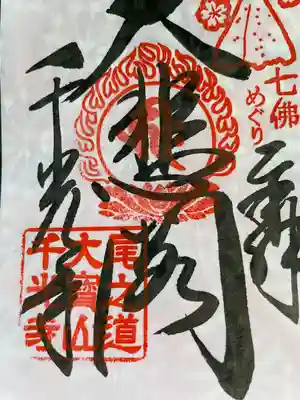 七佛
めぐり
拜
大悲閣
千光寺
尾之道
大寶山
千光寺